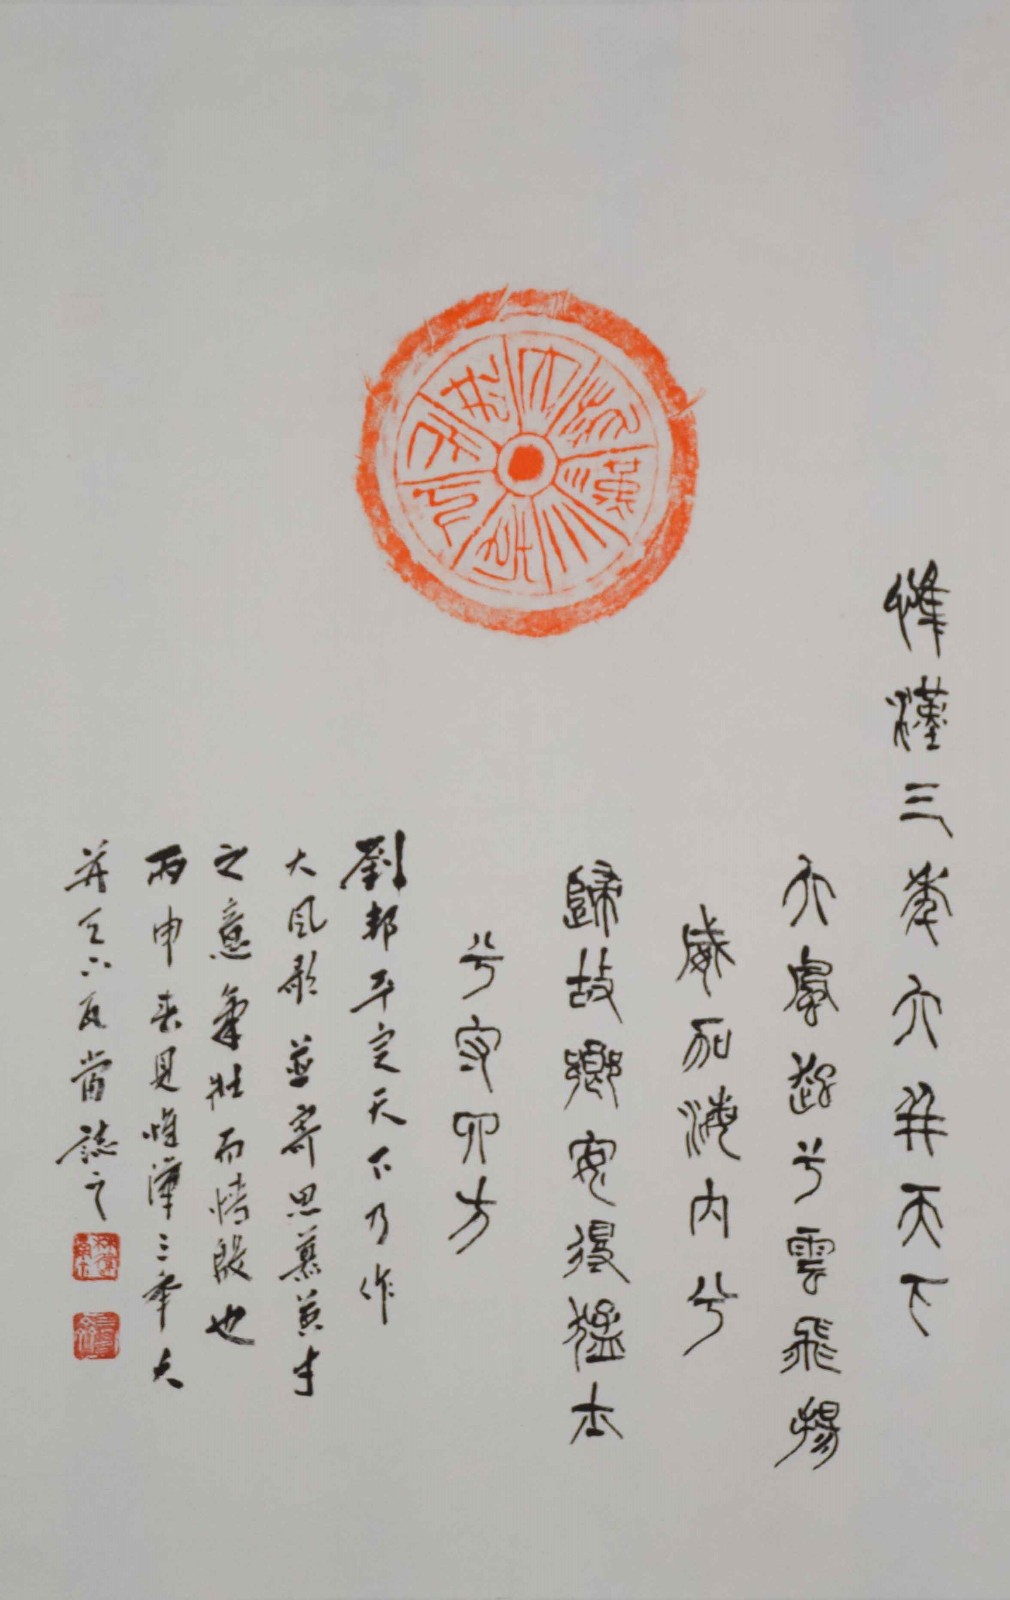 惟漢三年大并天下
惟漢三年大并天下
大風起兮雲飛揚
威加海内兮
歸故鄉安得猛士
兮守四方
劉邦平定天下乃作
大風歌並寄思慕英才
之意氣壯而情殷也
丙申春見惟漢三年大
并天下瓦當誌之